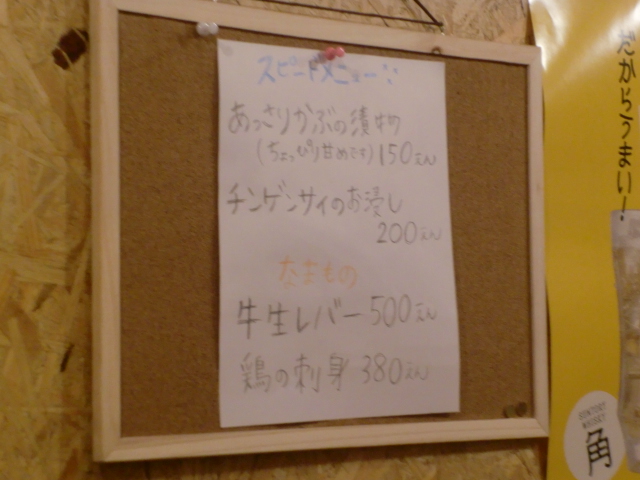 スピードメニュー
あっさりかぶの漬物
(ちょっぴり甘めです) 150えん
チンゲンサイのお浸し
200えん
なまもの
牛生レバー 500えん
鶏の刺身 380えん
だからうまい!
SUNTORY
WHISKY
角